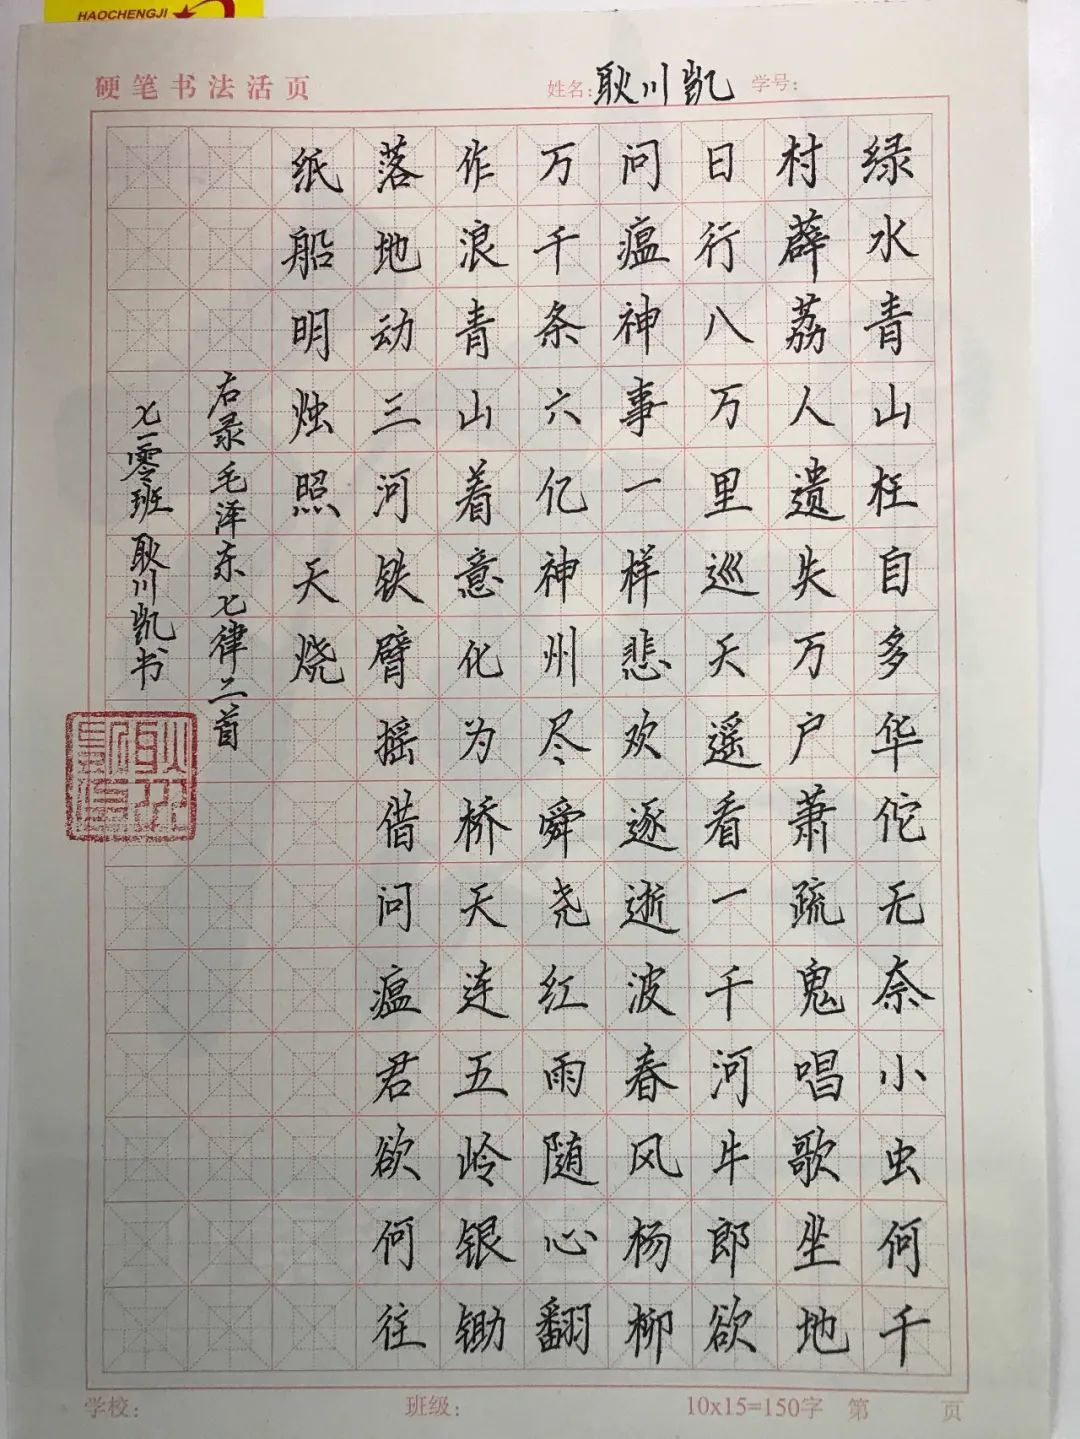 HAOCHENGJI
硬笔书法活页
姓名：耿川凯 学号：
绿水青山枉自多华佗无奈小虫何千
村薜荔人遗失万户萧疏鬼唱歌坐地
日行八万里巡天遥看一千河牛郎欲
问瘟神事一样悲欢逐逝波春风杨柳
万千条六亿神州尽舜尧红雨随心翻
作浪青山着意化为桥天连五岭银锄
落地动三河铁臂摇借问瘟君欲何往
纸船明烛照天烧
右录毛泽东七律二首
七一零班耿川凯书
学校： 班级： 10x15=150字 第 页